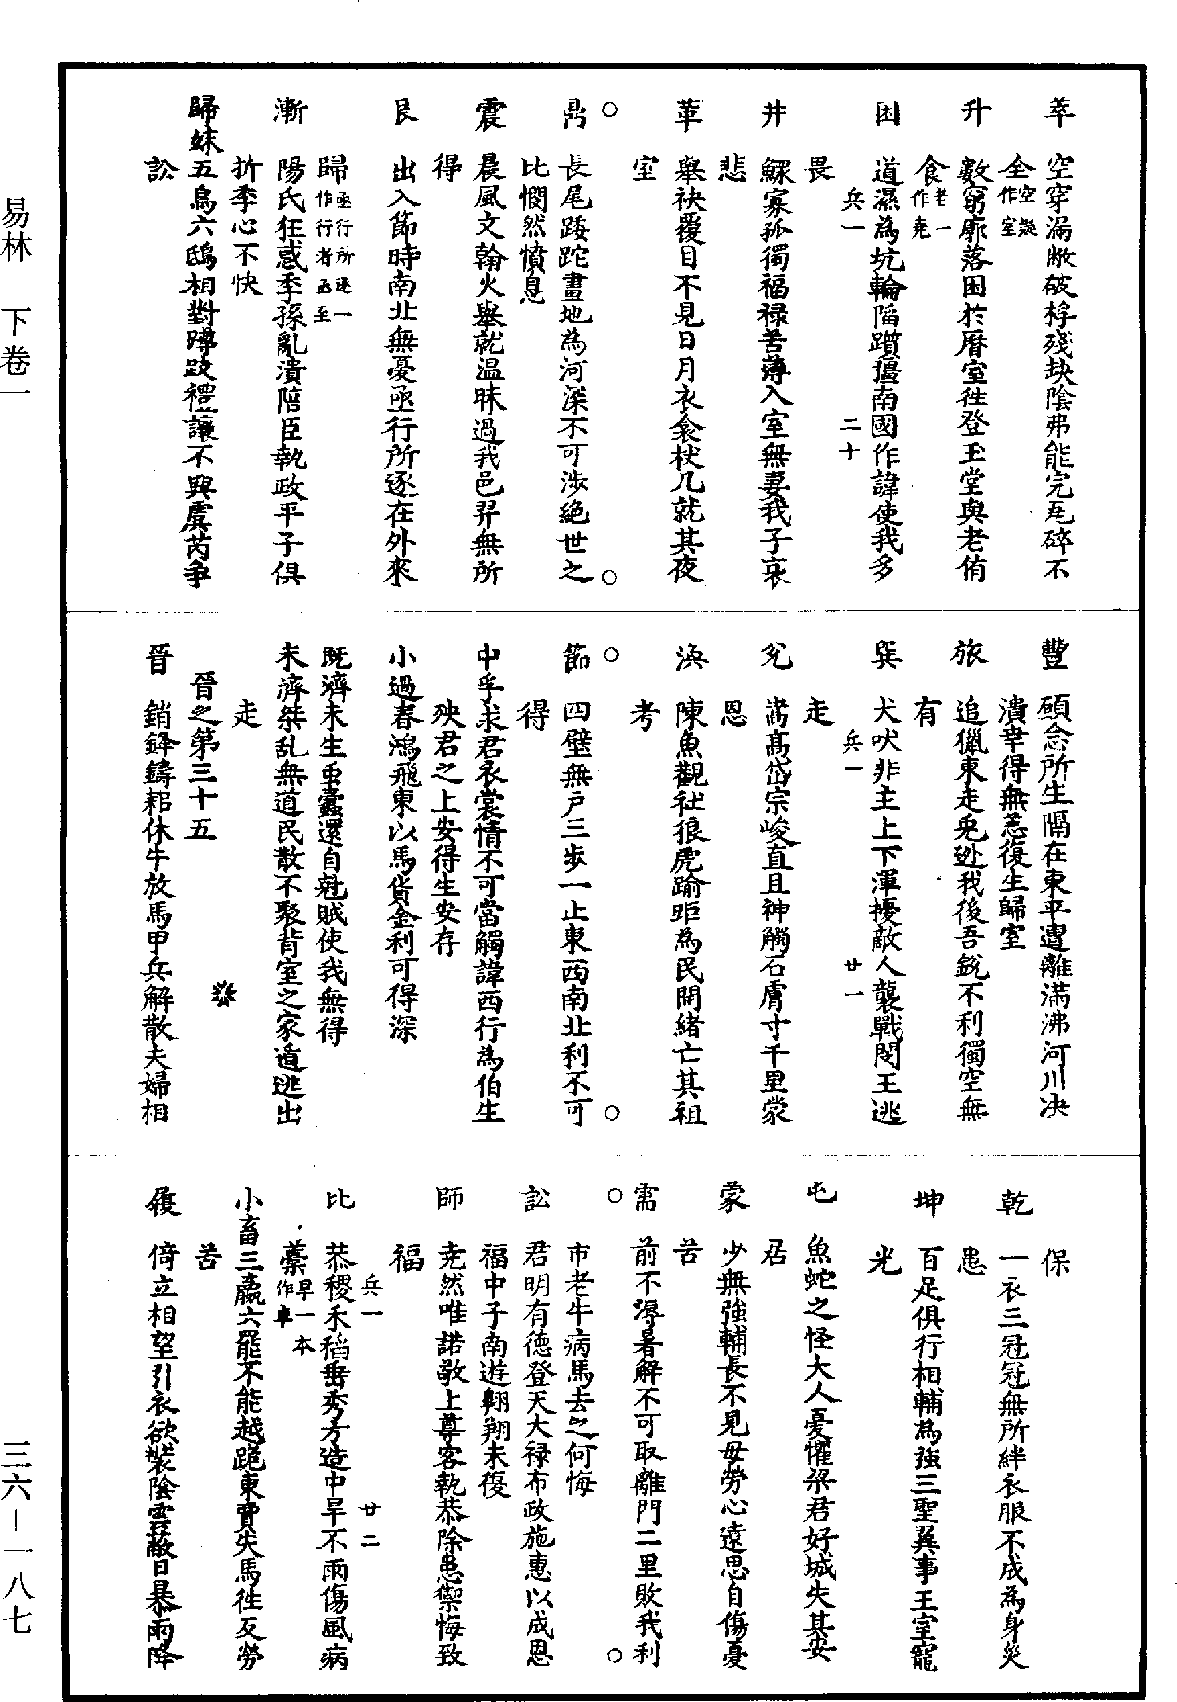 易林　下卷一
三六—一八七
萃　空穿漏敝破桴殘缺陰弗能完瓦碎不
全空一作室
升　數窮廓落困於曆室往登玉堂與老侑
食老一作堯
困　道濕為坑輪陷躓僵南國作諱使我多
畏
兵一　二十
井　鰥寡孤獨福祿苦薄入室無妻我子哀
悲
革　舉袂覆目不見日月衣衾杖几就其夜
室
鼎　長尾踒跎畫地為河深不可涉絕世之
比憫然憤息
震　晨風文翰火舉就温昧過我邑羿無所
得
艮　出入節時南北無憂亟行所逐在外來
歸亟行所逐一作行者亟至
漸　陽氏狂惑季孫亂潰陪臣執政平子俱
折季心不快
歸妹五鳥六鴟相對蹲跂禮讓不興虞芮爭
訟
豐　顧念所生隔在東平遭離滿沸河川決
潰幸得無恙復生歸室
旅　追獵東走兎逃我後吾銳不利獨空無
有
巽　犬吠非主上下渾擾敵人襲戰閔王逃
走
兵一　廿一
兌　嵩髙岱宗峻直且神觸石膚寸千里蒙
恩
渙　陳魚觀社狼虎踰距為民開緒亡其祖
考
節　四壁無戶三步一止東西南北利不可
得
中孚求君衣裳情不可當觸諱西行為伯生
殃君之上安得生安存
小過春鴻飛東以馬貨金利可得深
既濟未生䖝蠧還自尅賊使我無得
未濟桀乱無道民散不聚背室之家遁逃出
走
晉之第三十五
晉　銷鋒鑄耜休牛放馬甲兵解散夫婦相
保
乾　一衣三冠冠無所絆衣服不成為身災
患
坤　百足俱行相輔為強三聖異事王室寵
光
屯　魚蛇之怪大人憂懼梁君好城失其安
居
蒙　少無強輔長不見母勞心遠思自傷憂
苦
需　前不淂暑解不可取離門二里敗我利
市老牛病馬去之何悔
訟　君明有徳登天大禄布政施惠以成恩
福中子南遊翱翔未復
師　尭然唯諾敬上尊客執恭除患禦悔致
福
兵一　廿二
比　恭稷禾稻垂秀方造中旱不雨傷風病
藁旱一本作車
小畜三嬴六罷不能越跪東賈失馬徃反勞
苦
履　倚立相望引衣欲裝陰雲蔽日暴雨降